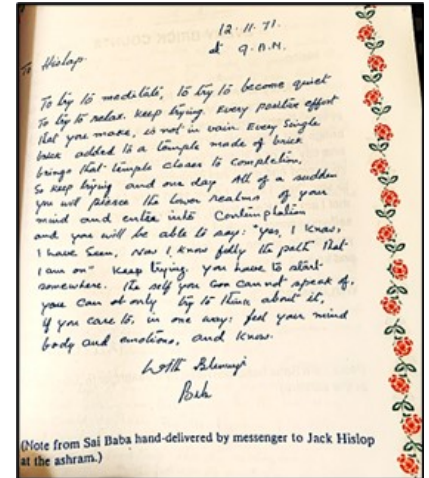 12.11.71.
at 9.A.M.
To Hislop.
To try to meditate, to try to become quiet
To try to relax. Keep trying. Every positive effort
that you make, is not in vain. Every Single
brick added to a temple made of brick
brings that temple closer to completion,
So keep trying and one day All of a sudden
you will pierce the lower realms of your
mind and enter into Contemplation
and you will be able to say: "Yes, I know,
I have Seen, Now I know fully the path that
I am on" Keep trying. You have to start
somewhere. The self you can cannot speak of,
you can only try to think about it,
if you care to, in one way: feel your mind
body and emotions, and know.
With Blessings
Baba
(Note from Sai Baba hand-delivered by messenger to Jack Hislop
at the ashram.)